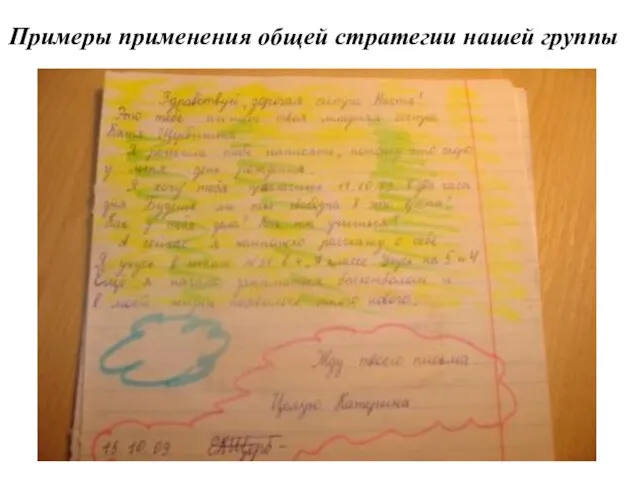 Примеры применения общей стратегии нашей группы
Здравствуй, дорогая сестра Настя!
Это тебе пишет твоя младшая сестра
Катя Щербинина.
Я решила тебе написать, потому что скоро
у меня день рождения.
Я хочу тебя пригласить 18.10.09 в два часа
дня. Будешь ли ты свободна в это время?
Как у тебя дела? Как ты учишься?
А сейчас я напишу расскажу о себе
Я учусь в школе в 4 "А" классе. Учусь на 5 и 4
Ещё я начала заниматься и
в моей жизни появилось много нового.
Жду твоего письма
Целую Катерина
15.10.09